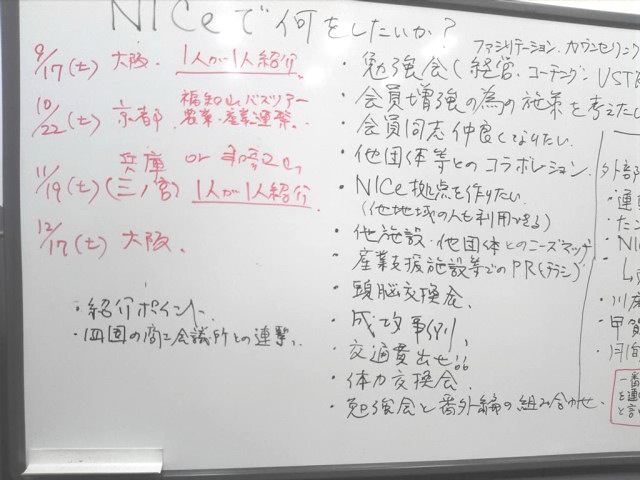 NICeで何をしたいか?
9/17(土) 大阪. 1人が1人紹介.
10/22(土) 京都 福知山バスツアー
農業・産業連携.
兵庫 or
11/19(土)(三ノ宮) 1人が1人紹介.
12/17(土) 大阪.
・紹介ポイント.
・四国の商工会議所との連携.
ファシリテーション カウンセリング
・勉強会(経営. コーチング.
・会員増強の為の施策を考えたい
・会員同志仲良くなりたい.
・他団体等とのコラボレション.
・NICe拠点を作りたい.
(他地域の人も利用できる)
・他施設・他団体とのニーズマッチ
・産業支援施設等でのPR(チラシ)
・頭脳交換会.
・成功事例.
・交通費出せ!!
・体力交換会.
・勉強会と番外編の組み合わせ.
外部
NI
甲賀
一番